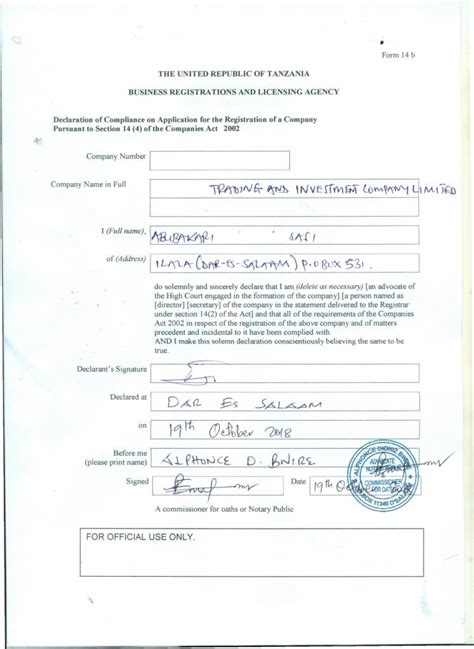 Form 14 b
THE UNITED REPUBLIC OF TANZANIA
BUSINESS REGISTRATIONS AND LICENSING AGENCY
Declaration of Compliance on Application for the Registration of a Company
Pursuant to Section 14 (4) of the Companies Act 2002
Company Number
Company Name in Full
TRADING AND INVESTMENT COMPANY LIMITED
I (Full name),
ABUBAKARI SAFI
of (Address)
ILALA (DAR-ES-SALAAM) P.O BOX 531.
do solemnly and sincerely declare that I am (delete as necessary) [an advocate of
the High Court engaged in the formation of the company] [a person named as
[director] [secretary] of the company in the statement delivered to the Registrar
under section 14(2) of the Act] and that all of the requirements of the Companies
Act 2002 in respect of the registration of the above company and of matters
precedent and incidental to it have been complied with.
AND I make this solemn declaration conscientiously believing the same to be
true.
Declarant's Signature
Declared at
DAR ES SALAAM
on
19th October 2018
Before me
(please print name)
ALPHONCE D. BNIRE
Signed
Date
19th October
ADVOCATE
COMMISSIONER
FOR OATHS
A commissioner for oaths or Notary Public
FOR OFFICIAL USE ONLY.